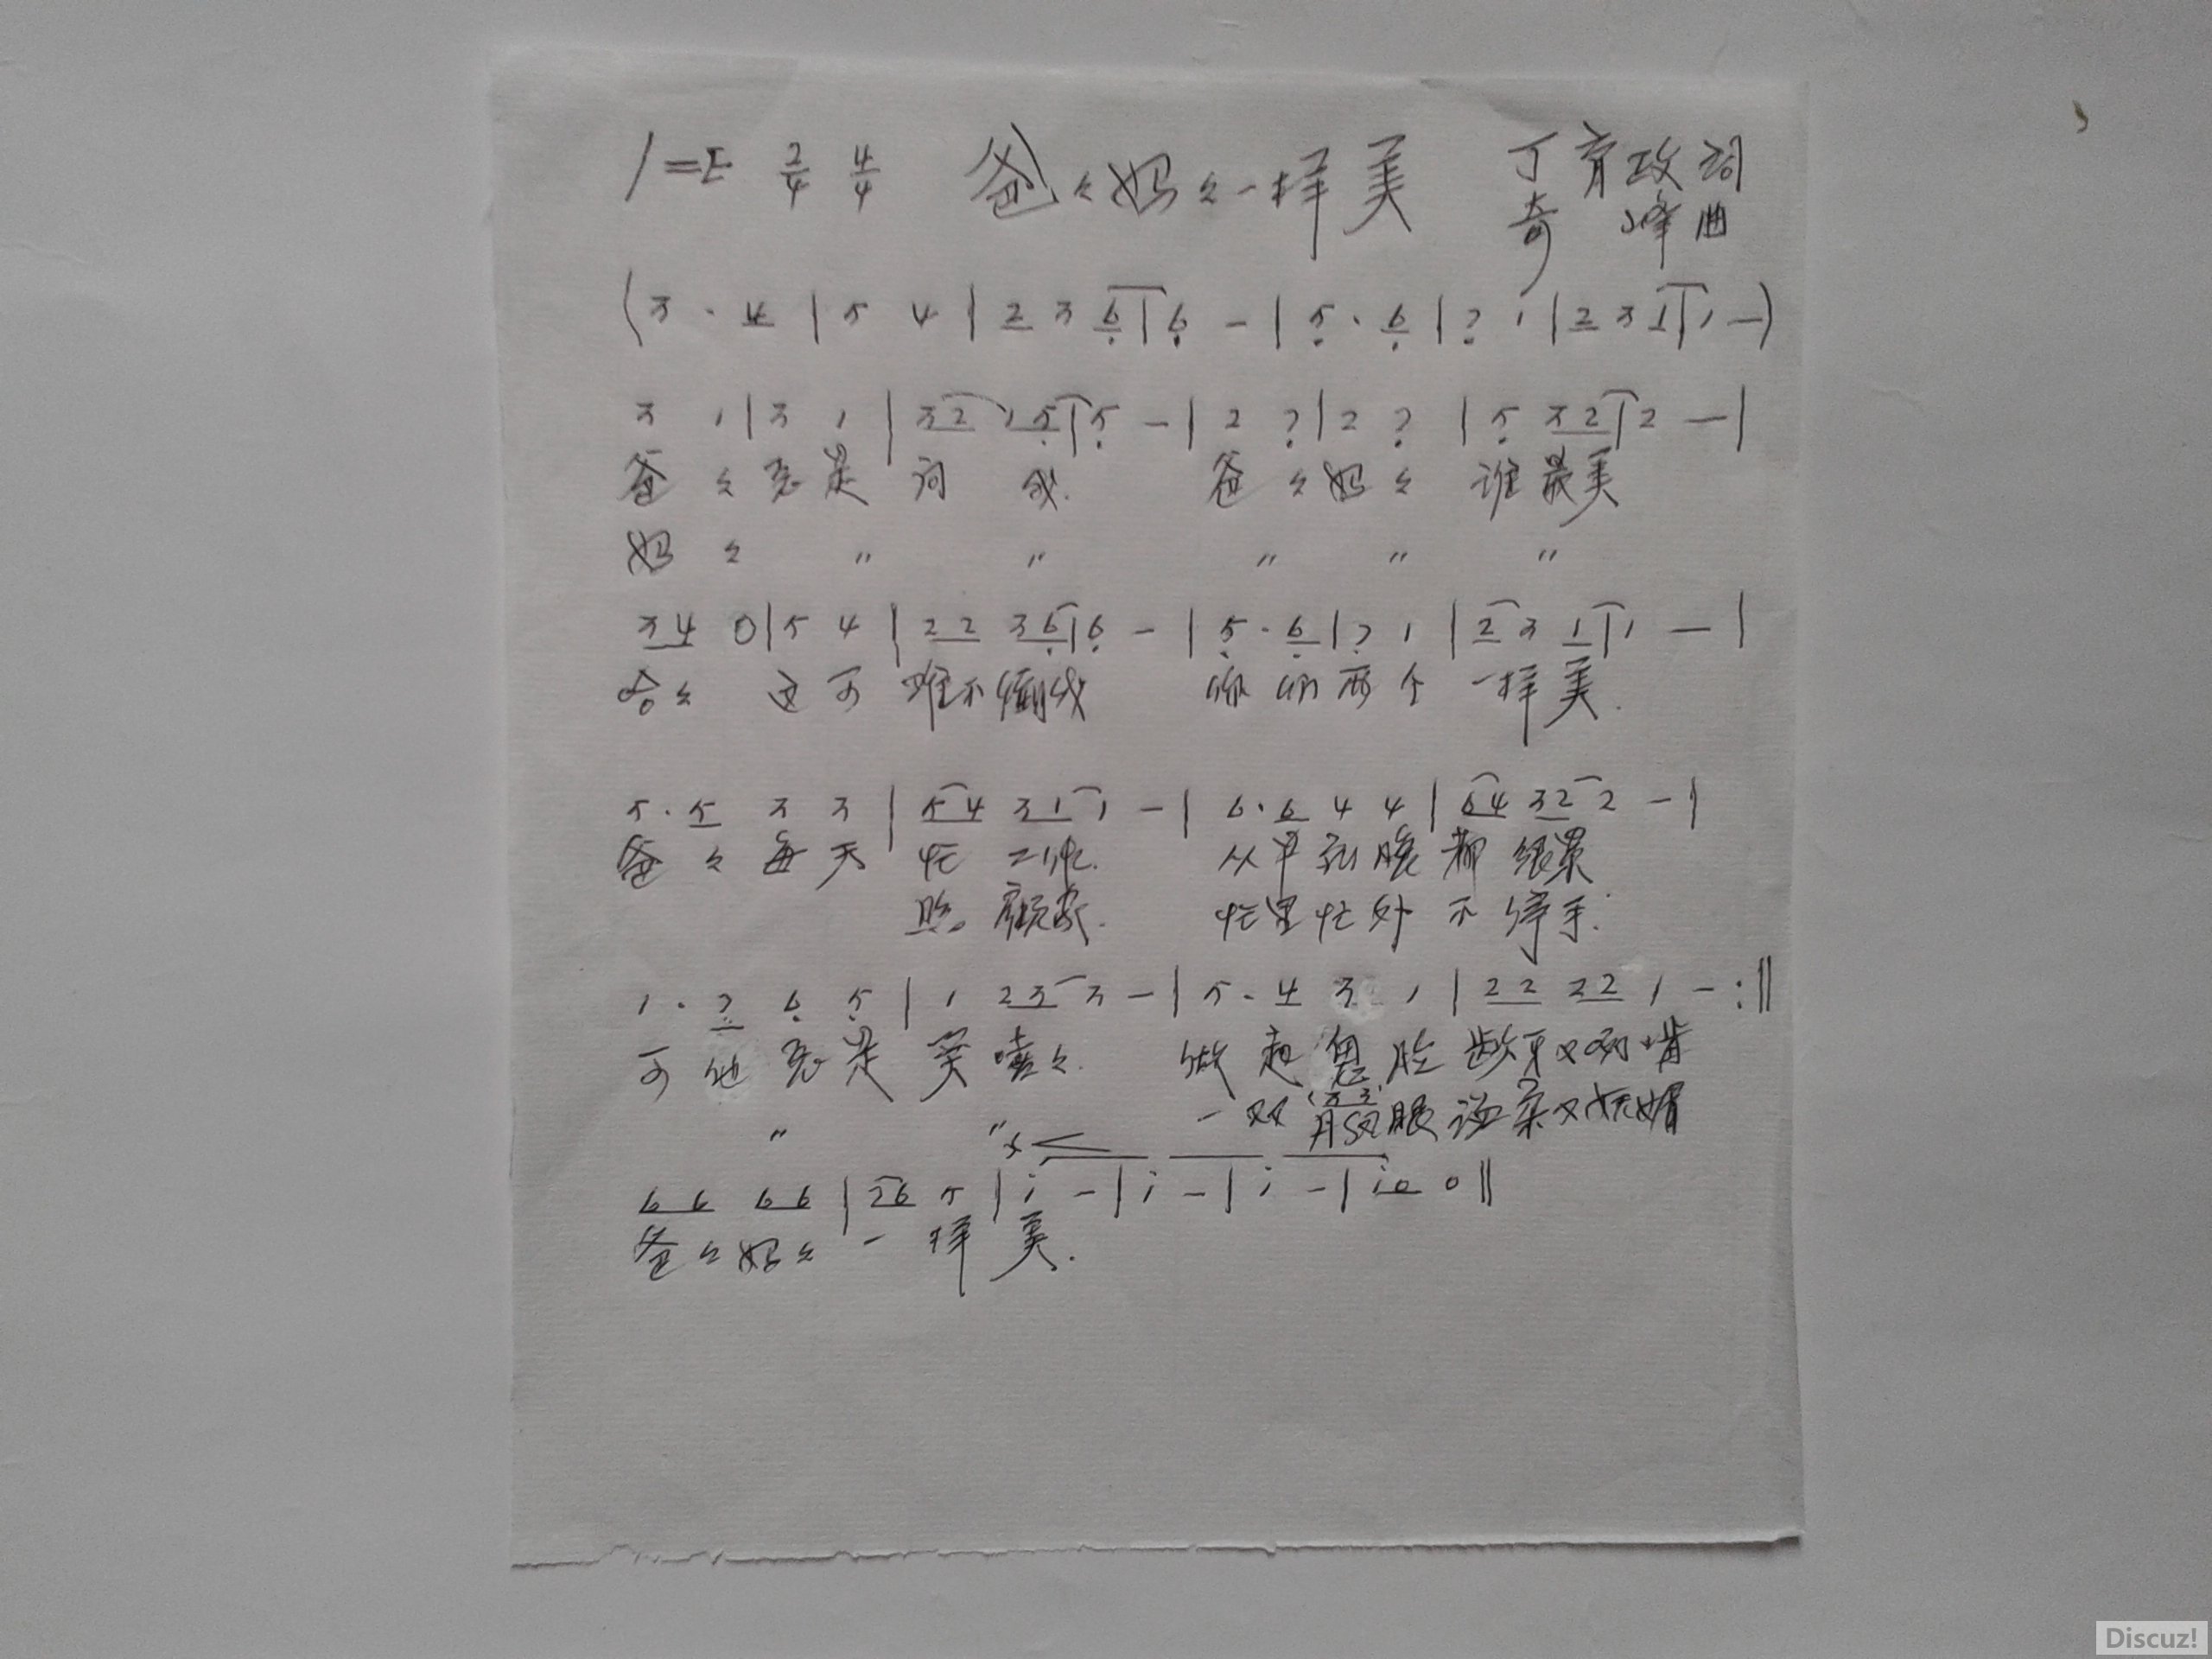 1=E 2/4 4/4 爸々妈々一样美 丁育政词
奇峰曲
(3 · 4 | 5 4 | 2 3 6 | 6 - | 5 · 6 | 7 1 | 2 3 1 | 1 -)
3 1 | 3 1 | 3 2 1 5 | 5 - | 2 7 | 2 7 | 5 3 2 | 2 - |
爸々总是问我. 爸々妈々谁最美
妈々 〃 〃 〃 〃 〃
3 4 0 | 5 4 | 2 2 3 6 | 6 - | 5 · 6 | 7 1 | 2 3 1 | 1 - |
哈々 这可难不倒我 你们两个一样美.
5 · 5 3 3 | 5 4 3 1 1 - | 6 · 6 4 4 | 6 4 3 2 2 - |
爸々每天忙工作. 从早到晚都很累
照顾家. 忙里忙外不停手.
1 · 7 6 5 | 1 2 3 3 - | 5 · 4 3 1 | 2 2 2 2 1 - :||
可他总是笑嘻々. 做起鬼脸龇牙又咧嘴
〃 〃 一双丹凤眼温柔又妩媚
6 6 6 6 | 2 6 5 | i - | i - | i - | i 0 0 ||
爸々妈々一样美.
Discuz!